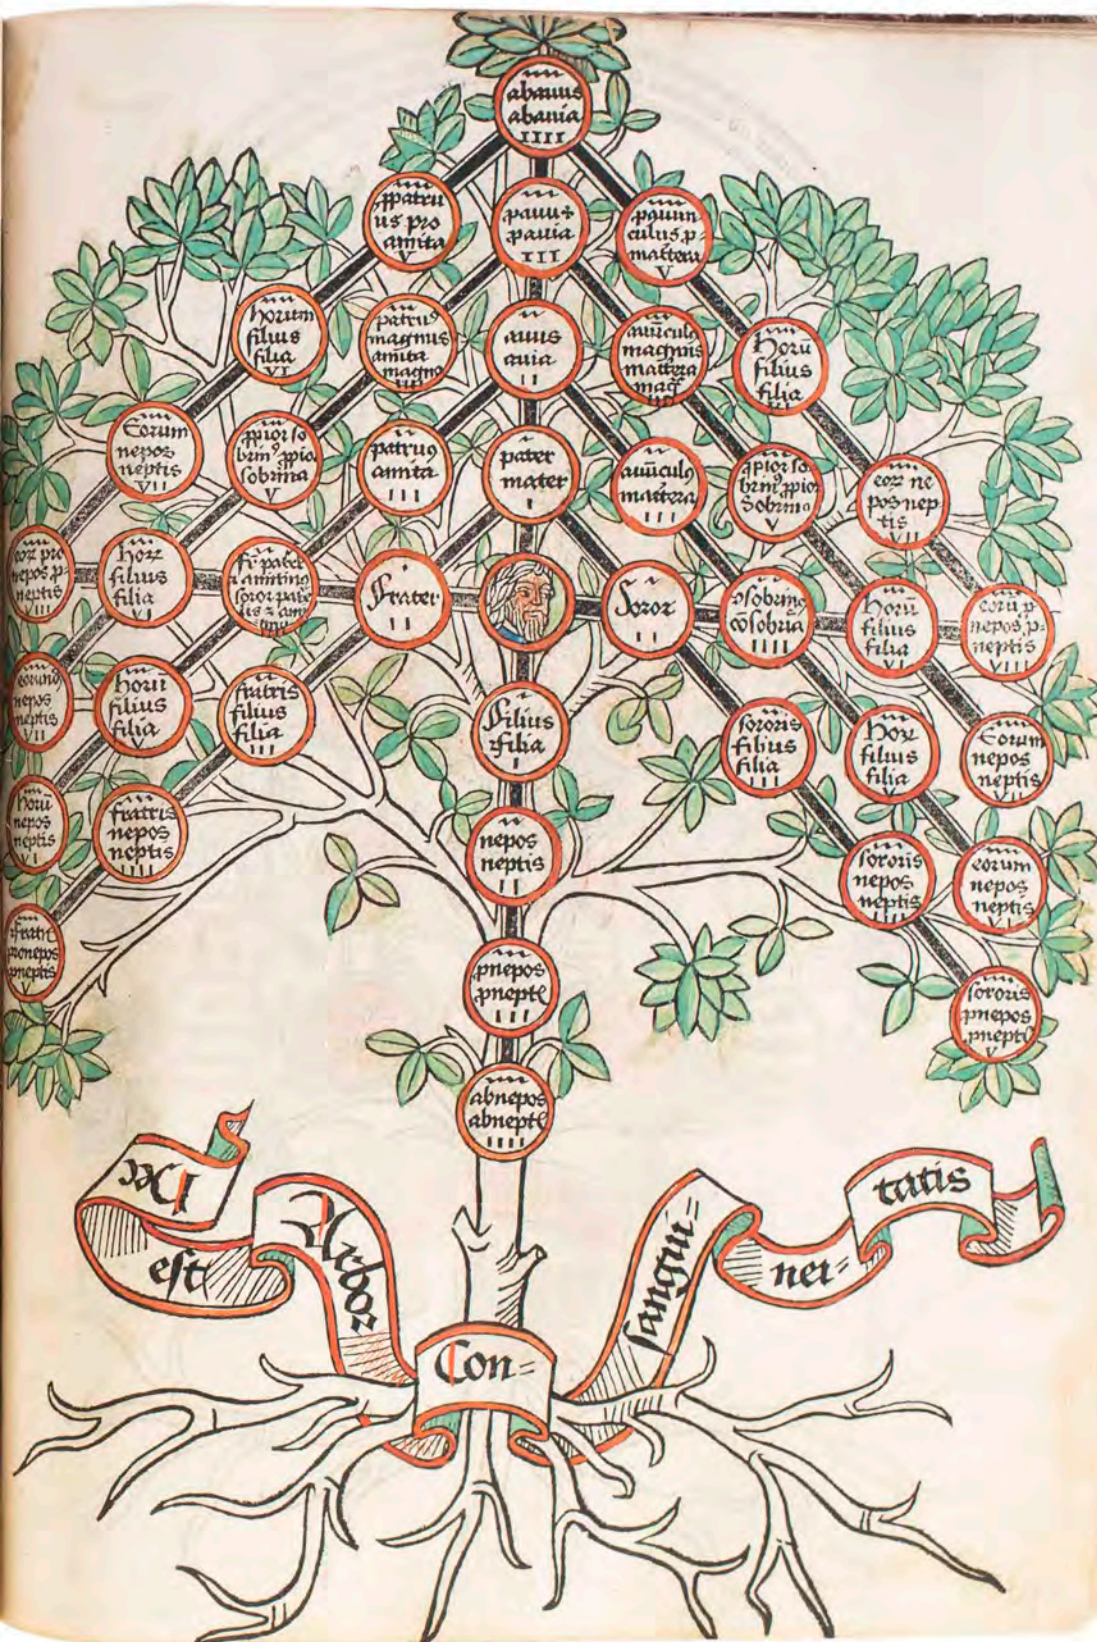 abauus
abauia
IIII
ꝓpatru
us pro
amita
V
pauus
pauia
III
pauun
culus p-
mat̃tera
V
horum
filius
filia
VI
patruꝰ
magnus
amita
magna
IIII
auus
auia
II
auũculꝰ
magnus
mat̃tera
mag̃
IIII
Horũ
filius
filia
VI
Eorum
nepos
neptis
VII
ꝓpior so
brinꝰ ꝓpio
sobrina
V
patruꝰ
amita
III
pater
mater
I
auũculꝰ
mat̃tera
III
ꝓpior so
brinꝰ ꝓpior
Sobrina
V
eoꝝ ne
pos nep
tis
VII
eoꝝ pro
nepos p-
neptis
VIII
hoꝝ
filius
filia
VI
Frater
II
Soror
II
ↄsobrinꝰ
cõsobria
IIII
Horũ
filius
filia
VI
eorũ p-
nepos p-
neptis
VIII
nepos
neptis
VII
horũ
filius
filia
V
fratris
filius
filia
III
Filius
⁊filia
I
sororis
filius
filia
III
Hoꝝ
filius
filia
V
Eorum
nepos
neptis
VII
horũ
nepos
neptis
VI
fratris
nepos
neptis
IIII
nepos
neptis
II
sororis
nepos
neptis
IIII
eorum
nepos
neptis
VI
pronepos
pneptis
V
pnepos
pneptꝭ
III
sororis
pnepos
pneptꝭ
V
abnepos
abneptꝭ
IIII
Dec
est
Arbor
Con=
sangui=
nei=
tatis